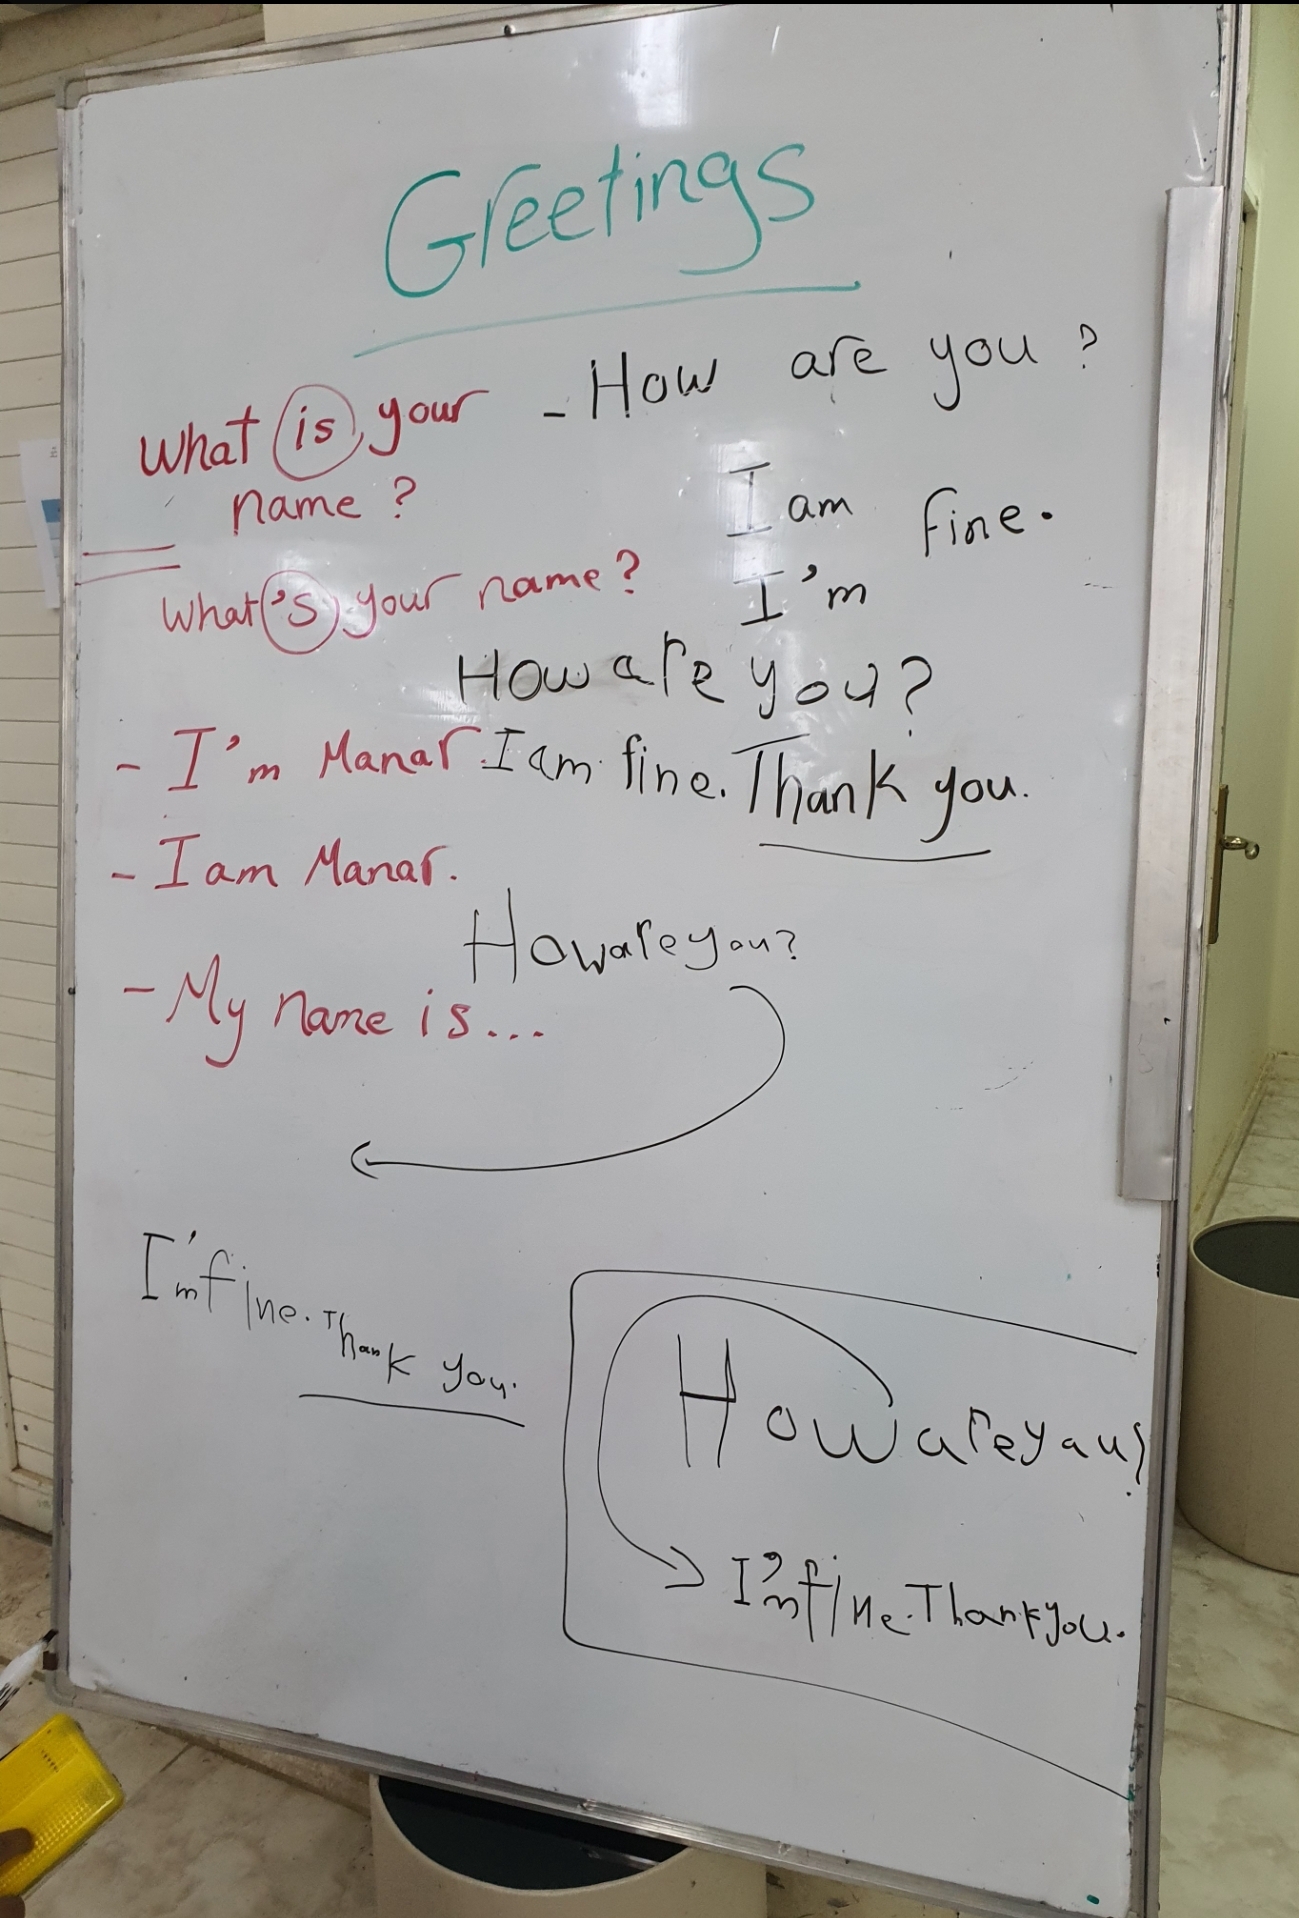 Greetings
What is your
name?
What's your name?
- How are you?
I am fine.
I'm
How are you?
- I'm Manar.
I am fine. Thank you.
- I am Manar.
How are you?
- My name is...
I'm fine. Thank you.
How are yau?
I'm fine. Thank you.